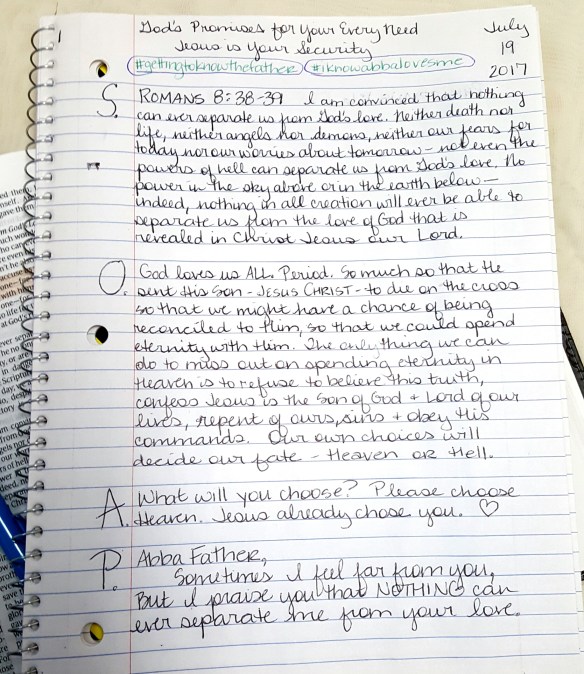 God's Promises for Your Every Need
July
Jesus is Your Security
19
#gettingtoknowthefather #iknowabbalovesme
2017
S. ROMANS 8:38-39 I am convinced that nothing
can ever separate us from God's love. Neither death nor
life, neither angels nor demons, neither our fears for
today nor our worries about tomorrow - not even the
powers of hell can separate us from God's love. No
power in the sky above or in the earth below -
indeed, nothing in all creation will ever be able to
separate us from the love of God that is
revealed in Christ Jesus our Lord.
O. God loves us ALL. Period. So much so that He
sent His Son - JESUS CHRIST - to die on the cross
so that we might have a chance of being
reconciled to Him, so that we could spend
eternity with Him. The only thing we can
do to miss out on spending eternity in
Heaven is to refuse to believe this truth,
confess Jesus is the Son of God + Lord of our
lives, repent of ours, sins + obey His
commands. Our own choices will
decide our fate - Heaven OR Hell.
A. What will you choose? Please choose
Heaven. Jesus already chose you. ♡
P. Abba Father,
Sometimes I feel far from you,
But I praise you that NOTHING can
ever separate me from your love.